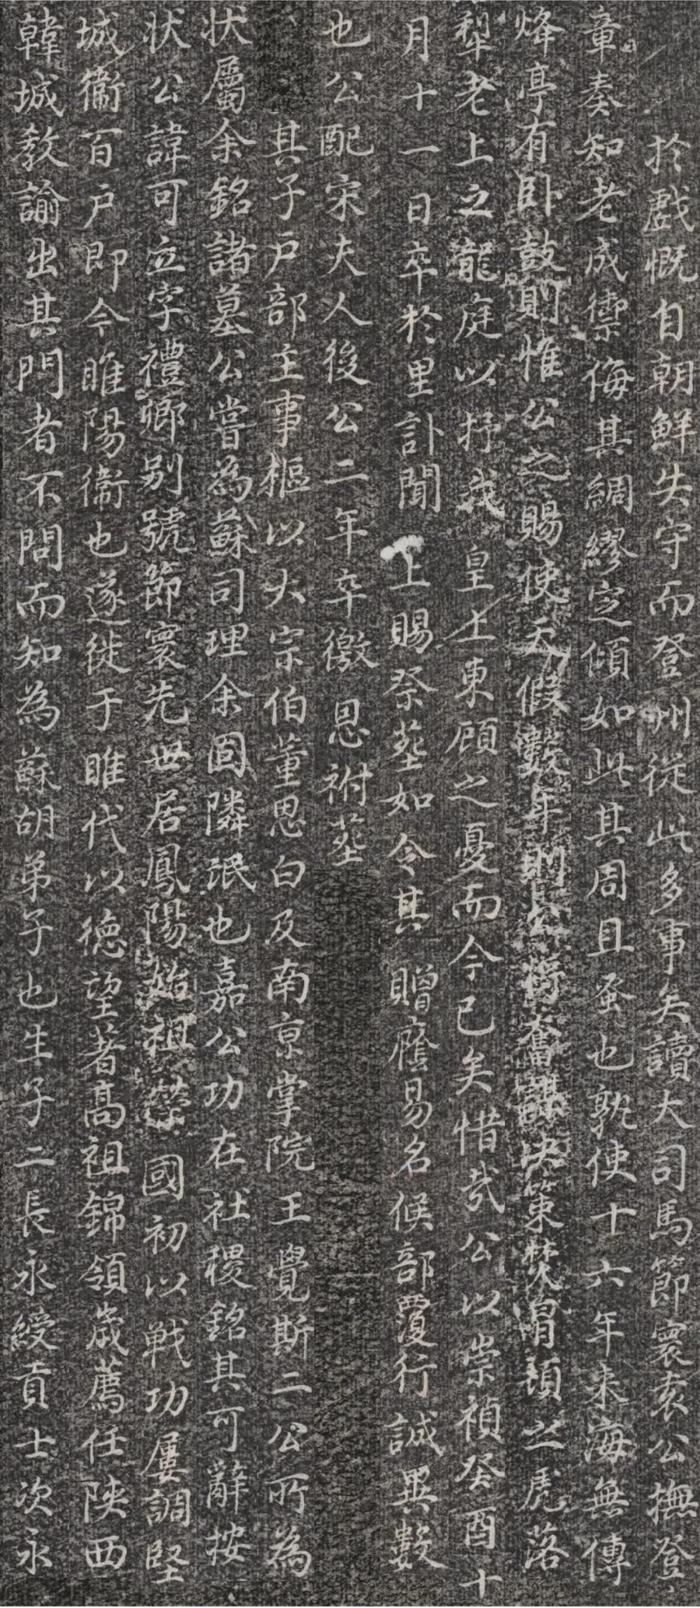 於戲慨自朝鮮失守而登州從此多事矣讀大司馬節寰袁公撫登
章奏知老成禦侮其綢繆定傾如此其周且蚤也孰使十六年來海無傳
烽亭有卧鼓則惟公之賜使天假數年則公將奮謀决策焚冒頓之虎落
犁老上之龍庭以抒我 皇上東顧之憂而今已矣惜哉公以崇禎癸酉十
月十一日卒於里訃聞 上賜祭塟如令其 贈廕易名候部覆行誠異數
也公配宋夫人後公二年卒徼 恩祔塟
其子戶部主事樞以大宗伯董思白及南京掌院王覺斯二公所為
状屬余銘諸墓公嘗為蘇司理余固隣氓也嘉公功在社稷銘其可辭按
状公諱可立字禮卿别號節寰先世居鳳陽始祖榮 國初以戰功屢調堅
城衞百戶即今睢陽衞也遂徙于睢代以德望著高祖錦領歲薦任陝西
韓城教諭出其門者不問而知為蘇胡弟子也生子二長永綬貢士次永